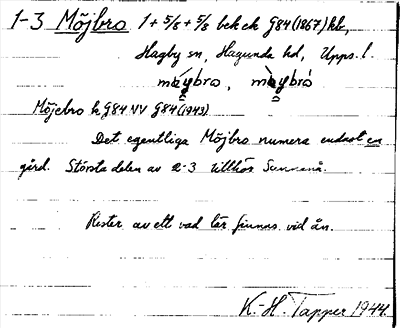 1-3 Möjbro 1 + 5/8 + 5/8 bebck G84 (1867) kb,
Hagby sn, Hagunda hd, Upps. l.
mòybro, mòybró
Möjebro h G84 NV G84 (1943)
Det egentliga Möjbro numera endast en
gård. Största delen av 2-3 tillhör Sunnanå.
Rester av ett vad lär finnas vid ån.
K.-H. Tapper 1944.